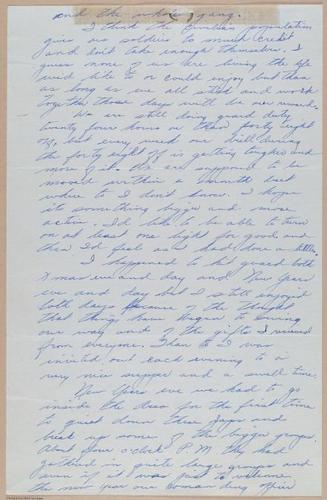 and the whole gang.
I think the civilian population
give us soldiers to much credit
and don't take enough themselves. I
guess none of us are living the life
we'd like to or could enjoy but then
as long as we all stick and work
together those days will be
We are still doing guard duty
twenty four hours on then forty eight
off, but every week our drill during
the forty eight off is getting tougher and
more of it. We are supposed to be
moved within a month but
where to I don't know. I hope
it's something bigger and more
active. I'd like to be able to turn
on at least one light for good and
then I'd feel as I had done a little.
I happened to hit guard both
Xmas eve and day and New Years
eve and day but I still enjoyed
both days because of the thought
that things have begun to swing
our way and of the gifts I received
from everyone. Then to I was
invited out each evening to a
very nice supper and a swell time.
New Years eve we had to go
inside the for the first time
to quiet down these Japs and
break up some of the bigger groups.
About four o'clock P.M. they had
gathered in quite large groups and
even if it was just to welcome
the new year our Commanding officer